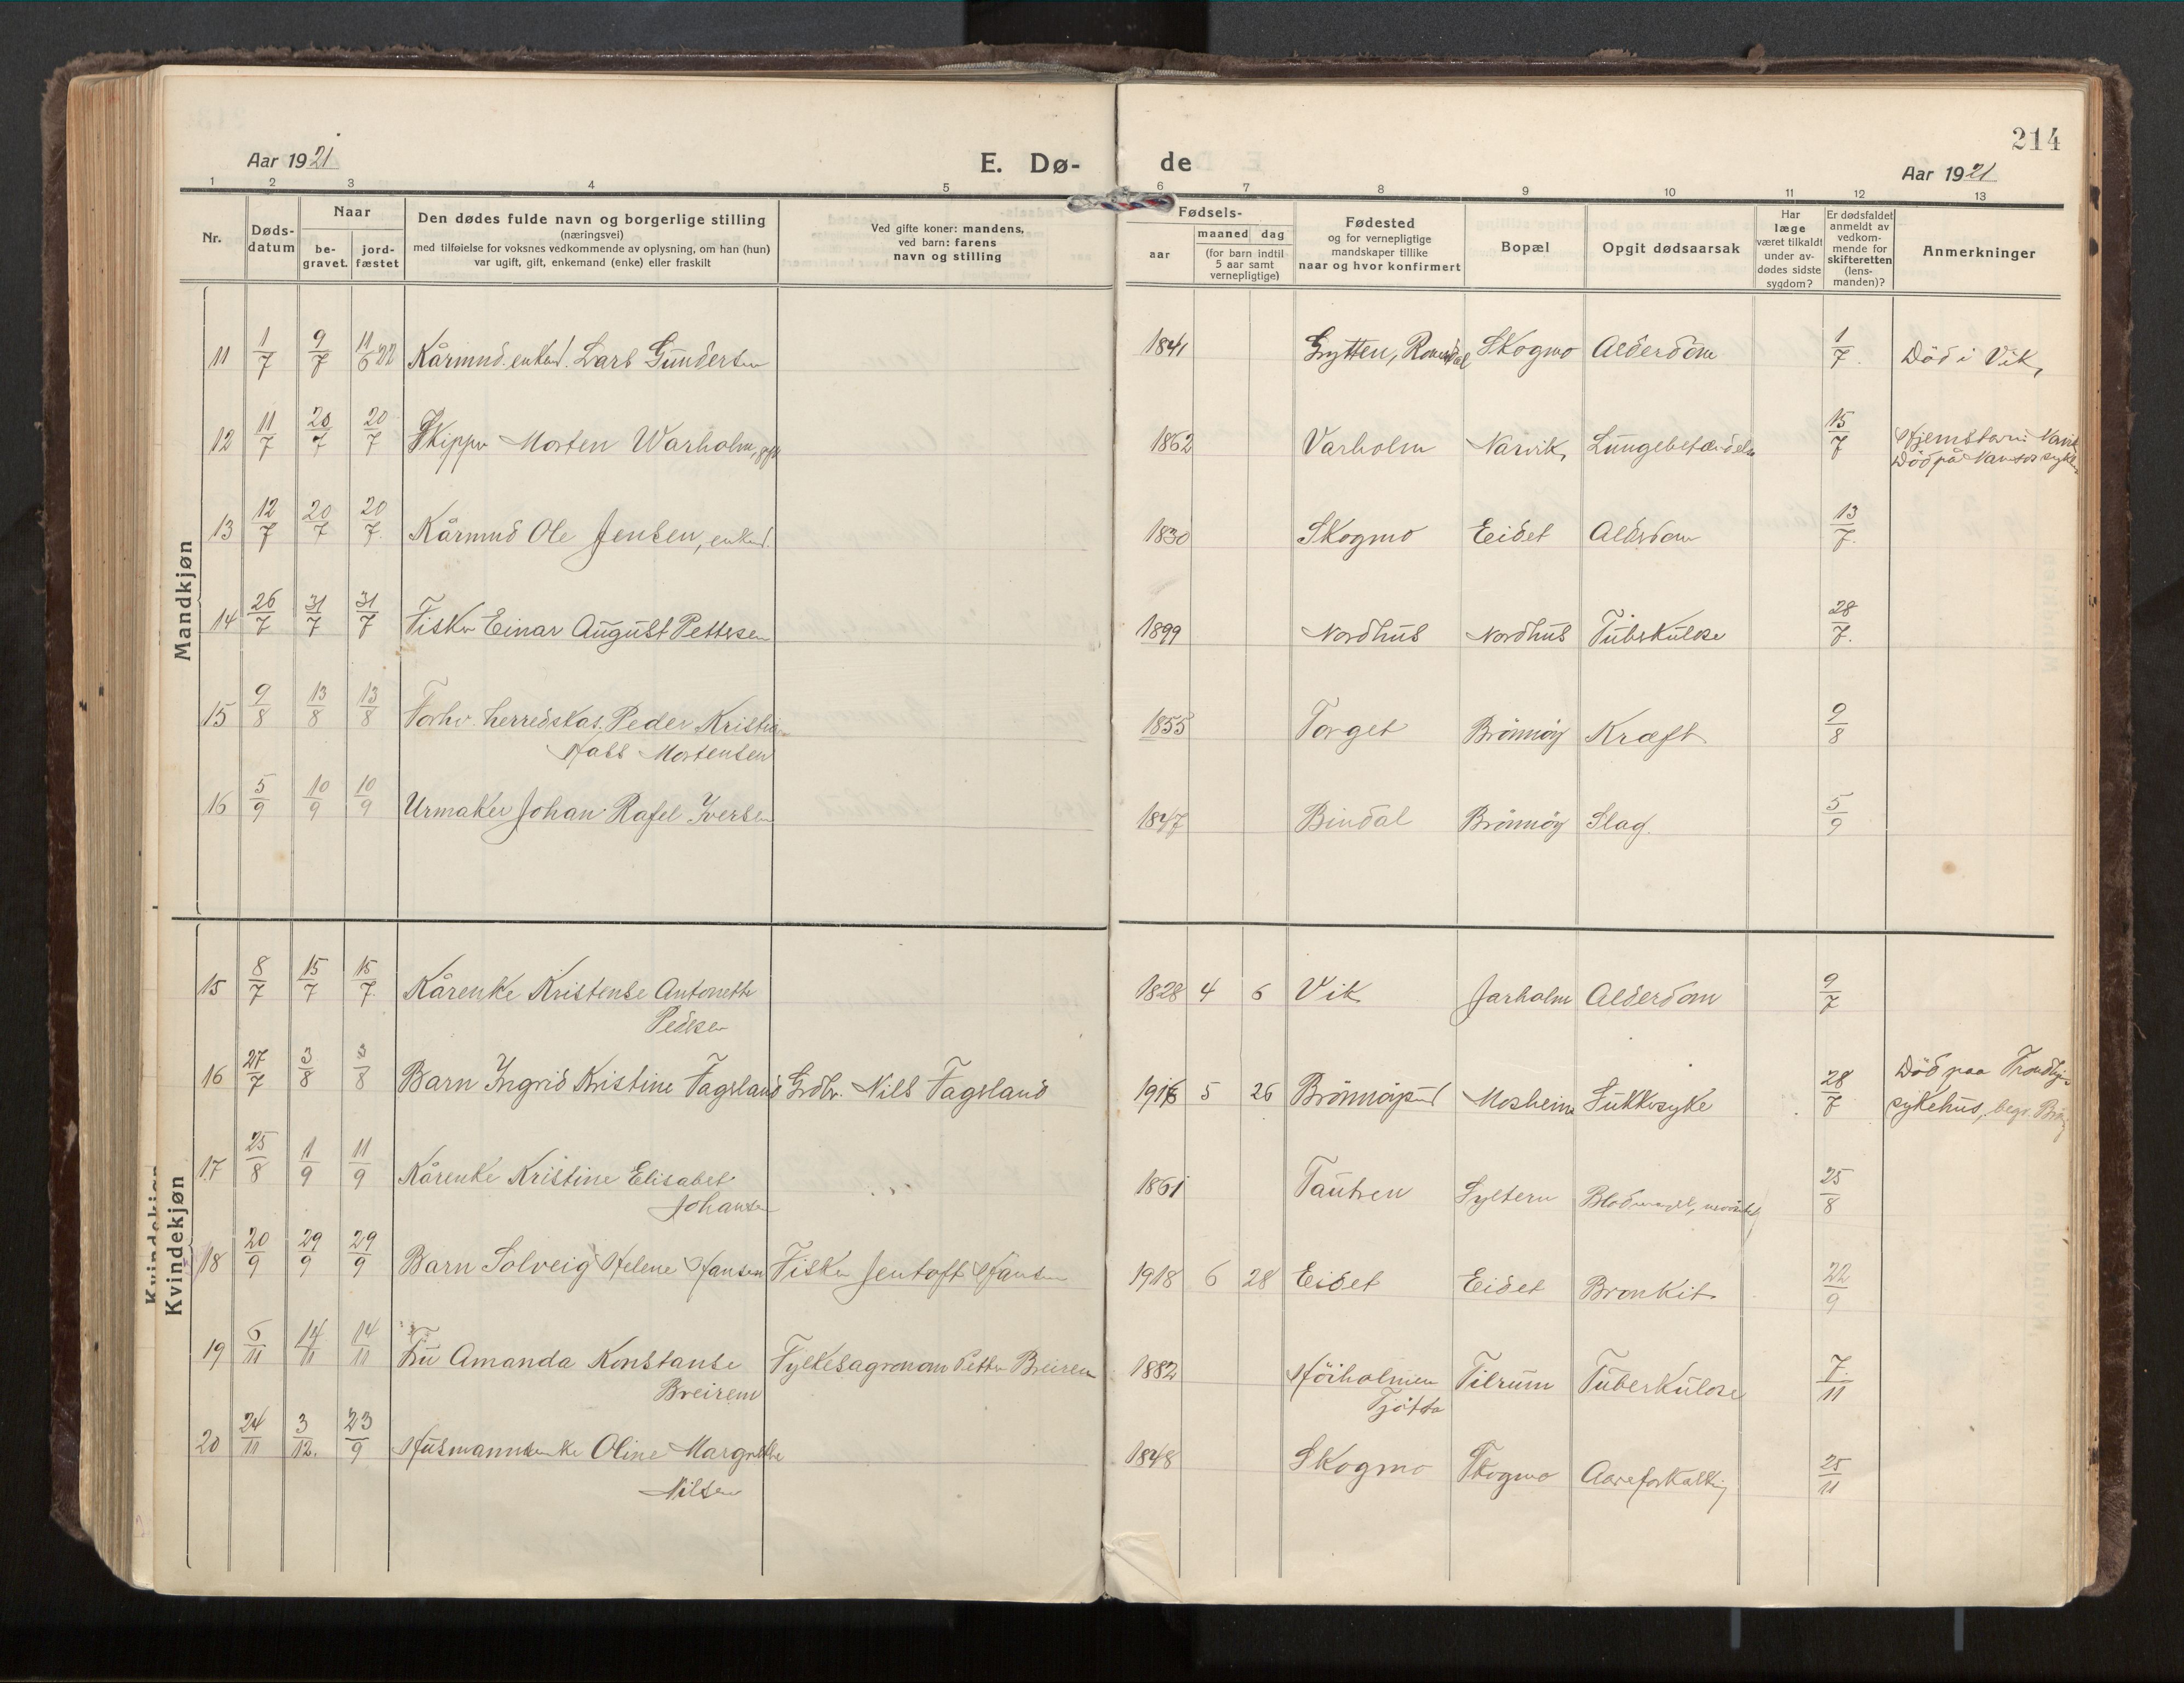 214
Aar 1921
E. Dø-
de
Aar 1921
1 2 3 4 5 6 7 8 9 10 11 12 13
Nr.
Døds-
datum
Naar
be-
gravet.
jord-
fæstet
Den dødes fulde navn og borgerlige stilling
(næringsvei)
med tilføielse for voksnes vedkommende av oplysning, om han (hun)
var ugift, gift, enkemand (enke) eller fraskilt
Ved gifte koner: mandens,
ved barn: farens
navn og stilling
Fødsels-
aar
maaned dag
(for barn indtil
5 aar samt
vernepligtige)
Fødested
og for vernepligtige
mandskaper tillike
naar og hvor konfirmert
Bopæl
Opgit dødsaarsak
Har
læge
været tilkaldt
under av-
dødes sidste
sygdom?
Er dødsfaldet
anmeldt av
vedkom-
mende for
skifteretten
(lens-
manden)?
Anmerkninger
Mandkjøn
11 1/7 9/7 11/6 22 Kårmnd. enkem. Lars Gundersen 1841 Grytten, Romsdal Skogmo Alderdom 1/7 Död i Vik,
12 11/7 20/7 20/7 Skipper Morten Warholm, gift 1862 Varholm Narvik, Lungebetændelse 15/7 Hjemstavn: Narvik
Död på Namsos sykeh
13 12/7 20/7 20/7 Kårmnd Ole Jensen, enkem. 1830 Skogmo Eidet Alderdom 13/7
14 26/7 31/7 31/7 Fisker Einar August Pettersen 1899 Nordhus Nordhus Tuberkulose 28/7
15 9/8 13/8 13/8 Forhv. herredskas. Peder Kristian
Mortensen 1855 Torget Brönnöy Kræft 9/8
16 5/9 10/9 10/9 Urmaker Johan Rafel Iversen 1847 Bindal Brönnöy Slag. 5/9
Kvindekjøn
15 8/7 15/7 15/7 Kårenke Kristense Antonette
Pedersen 1828 4 6 Vik Jarholm Alderdom 9/7
16 27/7 3/8 3/8 Barn Ingrid Kristine Fagerland Grdbr. Nils Fagerland 1916 5 26 Brönnöysund Mosheim Sukkersyke 28/7 Död paa Trondhjems
sykehus, begr. Brön
17 25/8 1/9 11/9 Kårenke Kristine Elisabet
Johansen 1861 Tautren Syltern 25/8
18 20/9 29/9 29/9 Barn Solveig Helene Hansen Fisker Jentoft Hansen 1918 6 28 Eidet Eidet Bronkit 22/9
19 6/11 14/11 14/11 Fru Amanda Konstanse
Breirem Fylkesagronom Petter Breirem 1882 Höiholmen
Tjötta Tilrum Tuberkulose 7/11
20 24/11 3/12. 23/9 Husmannsenke Oline Margrethe
Nilsen 1848 Skogmo Skogmo Aareforkalkning 25/11
Kvindekjøn